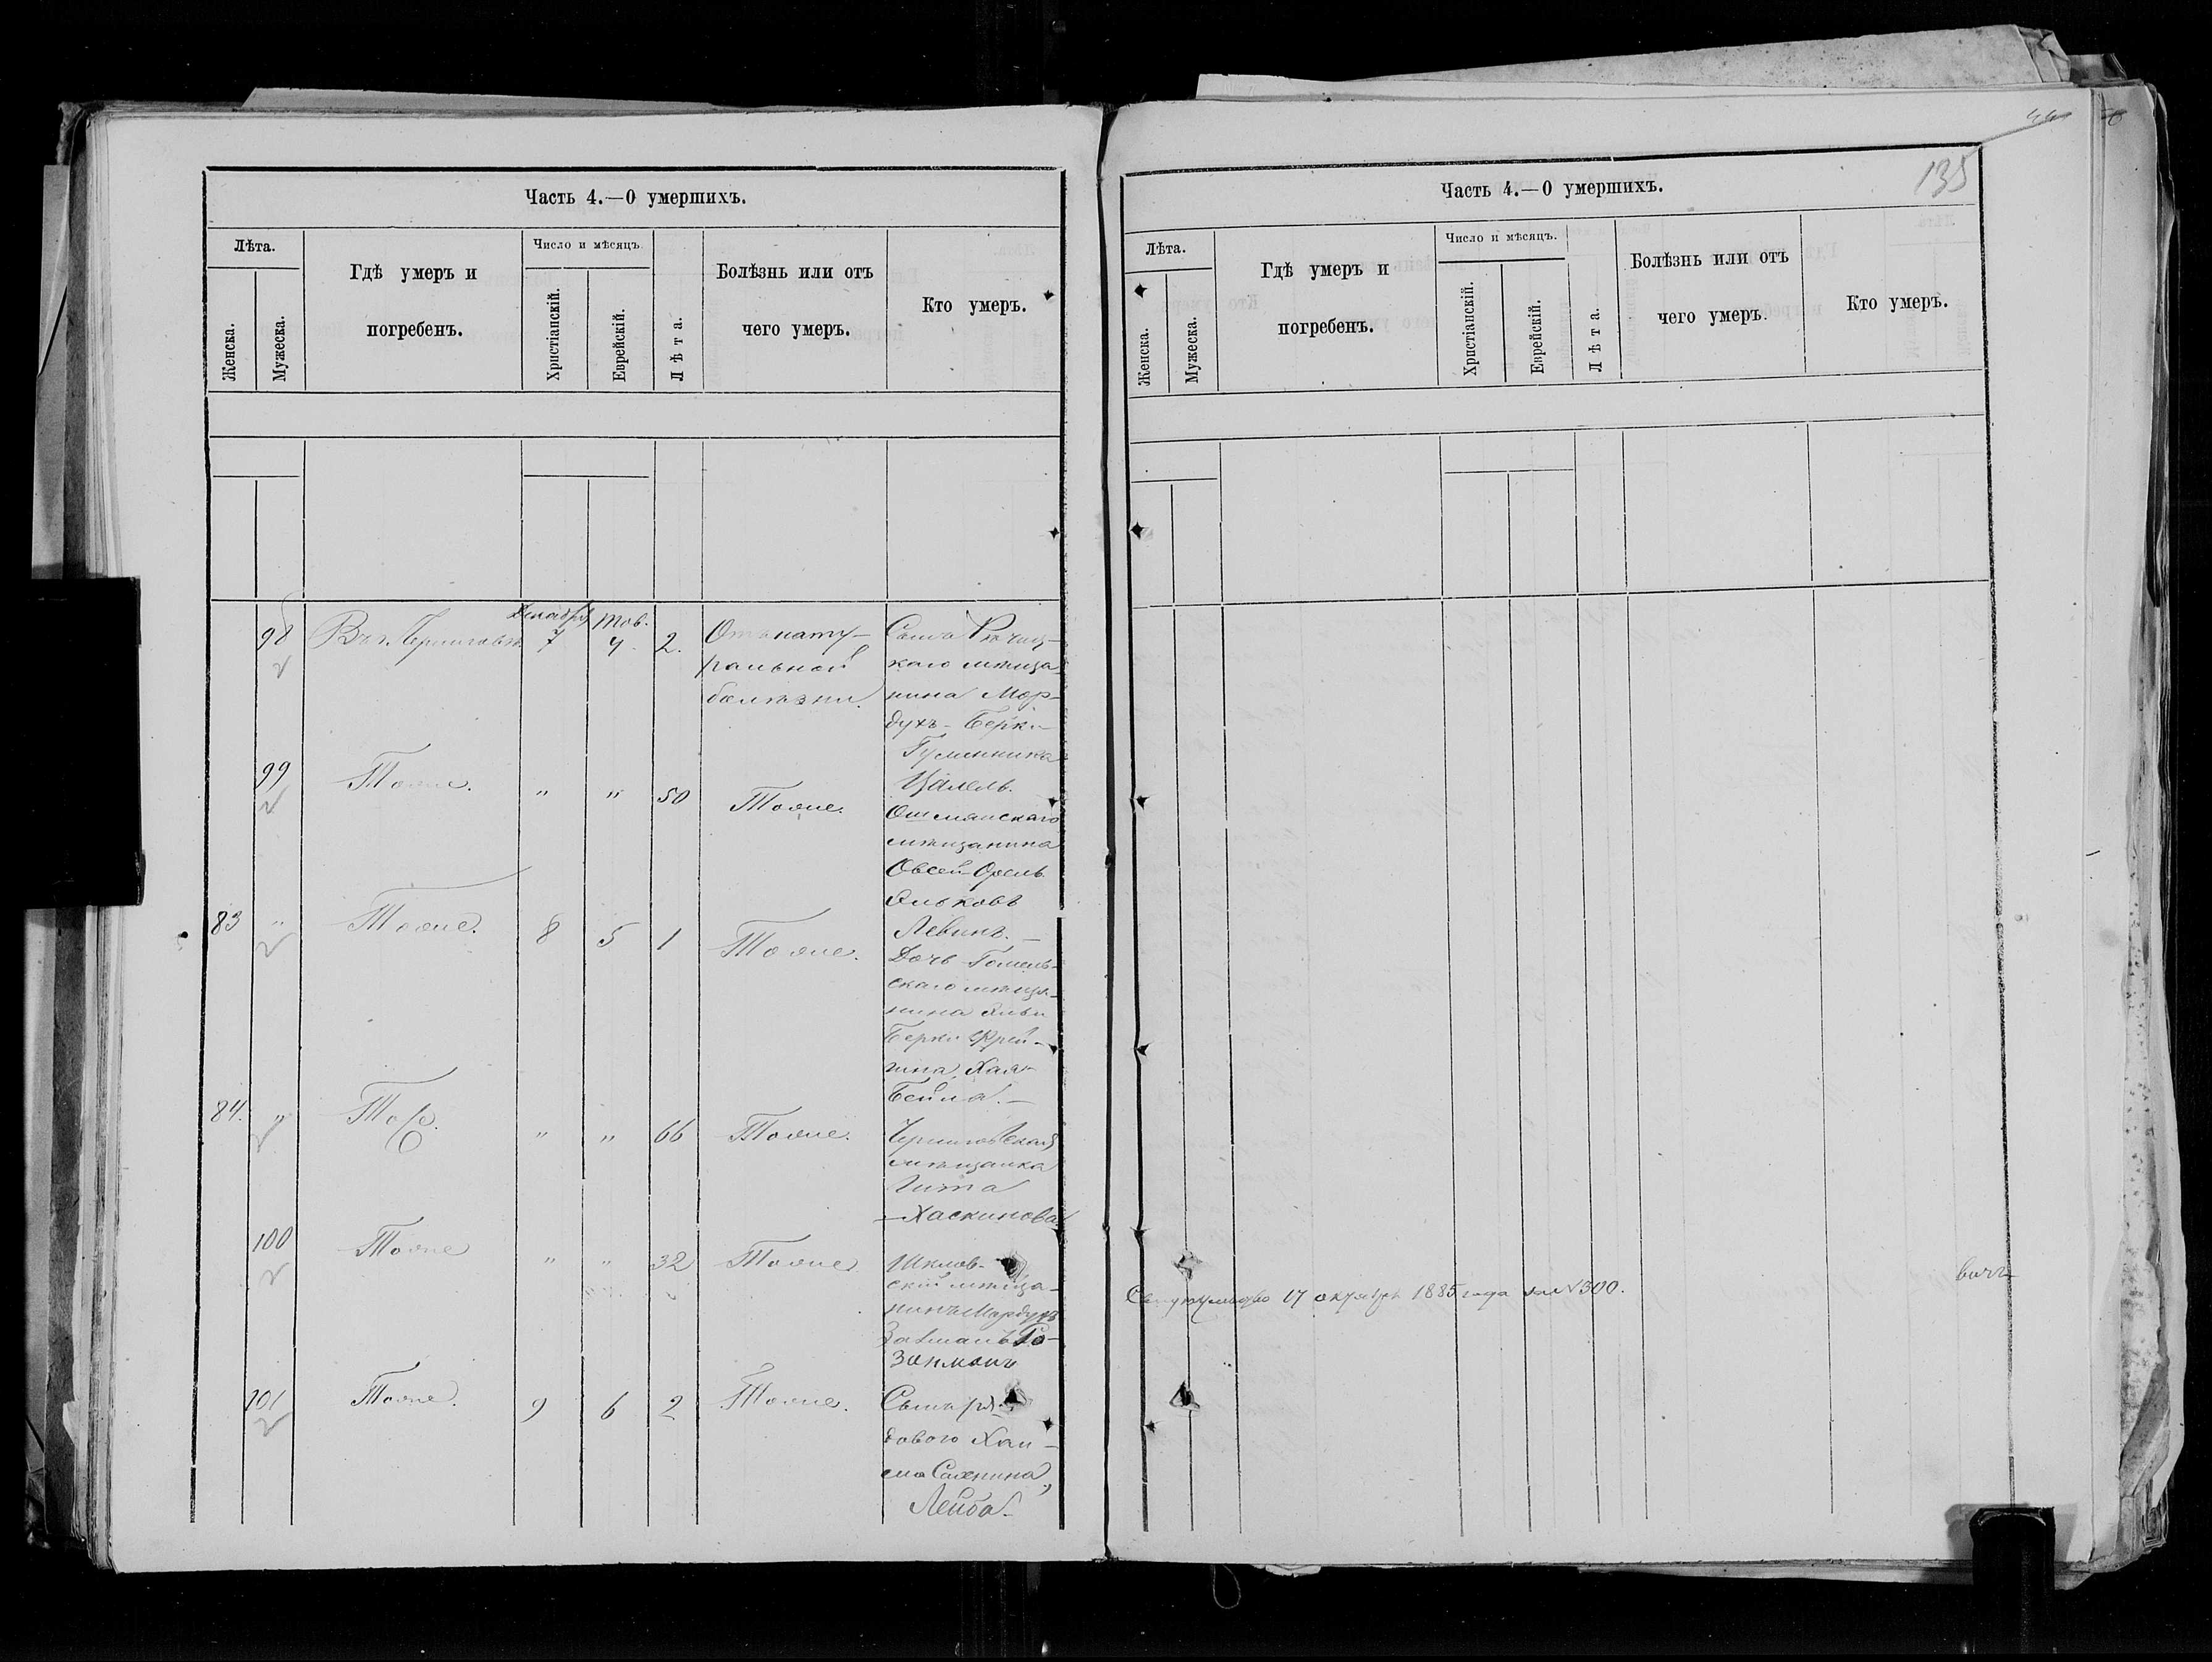 Часть 4.—О умершихъ.
Лѣта.
Женска.
Мужеска.
Гдѣ умеръ и
погребенъ.
Число и мѣсяцъ.
Христіанскій.
Еврейскій.
Лѣта.
Болѣзнь или отъ
чего умеръ.
Кто умеръ.
98 Въ г. Черниговѣ. Декабрь 7 Тов. 4. 2.
Отъ нату-
ральной
болѣзни.
Сынъ Рѣчиц-
каго мѣща-
нина Мор-
духъ-Берки
Гуменника
99 Тоже. " " 50 Тоже.
Ошмянскаго
мѣщанина
Овсей
Левинъ.—
83 " Тоже. 8 5 1 Тоже.
Дочь Гомель-
скаго мѣща-
нина
Берки Фрей-
дина, Хая-
Бейла.—
84. " Тоже. " " 66 Тоже.
Черниговская
мѣщанка
Гита
Хаскинова
100 Тоже " " 32 Тоже
Шклов-
скій мѣща-
нинъ Мордухъ
Залманъ Ро-
занманъ
101 Тоже. 9 6 2 Тоже.
Сынъ ря-
дового Хаи-
ма
Лейба.
135
Часть 4.—О умершихъ.
Лѣта.
Женска.
Мужеска.
Гдѣ умеръ и
погребенъ.
Число и мѣсяцъ.
Христіанскій.
Еврейскій.
Лѣта.
Болѣзнь или отъ
чего умеръ.
Кто умеръ.
17 октября 1885 года за №300.